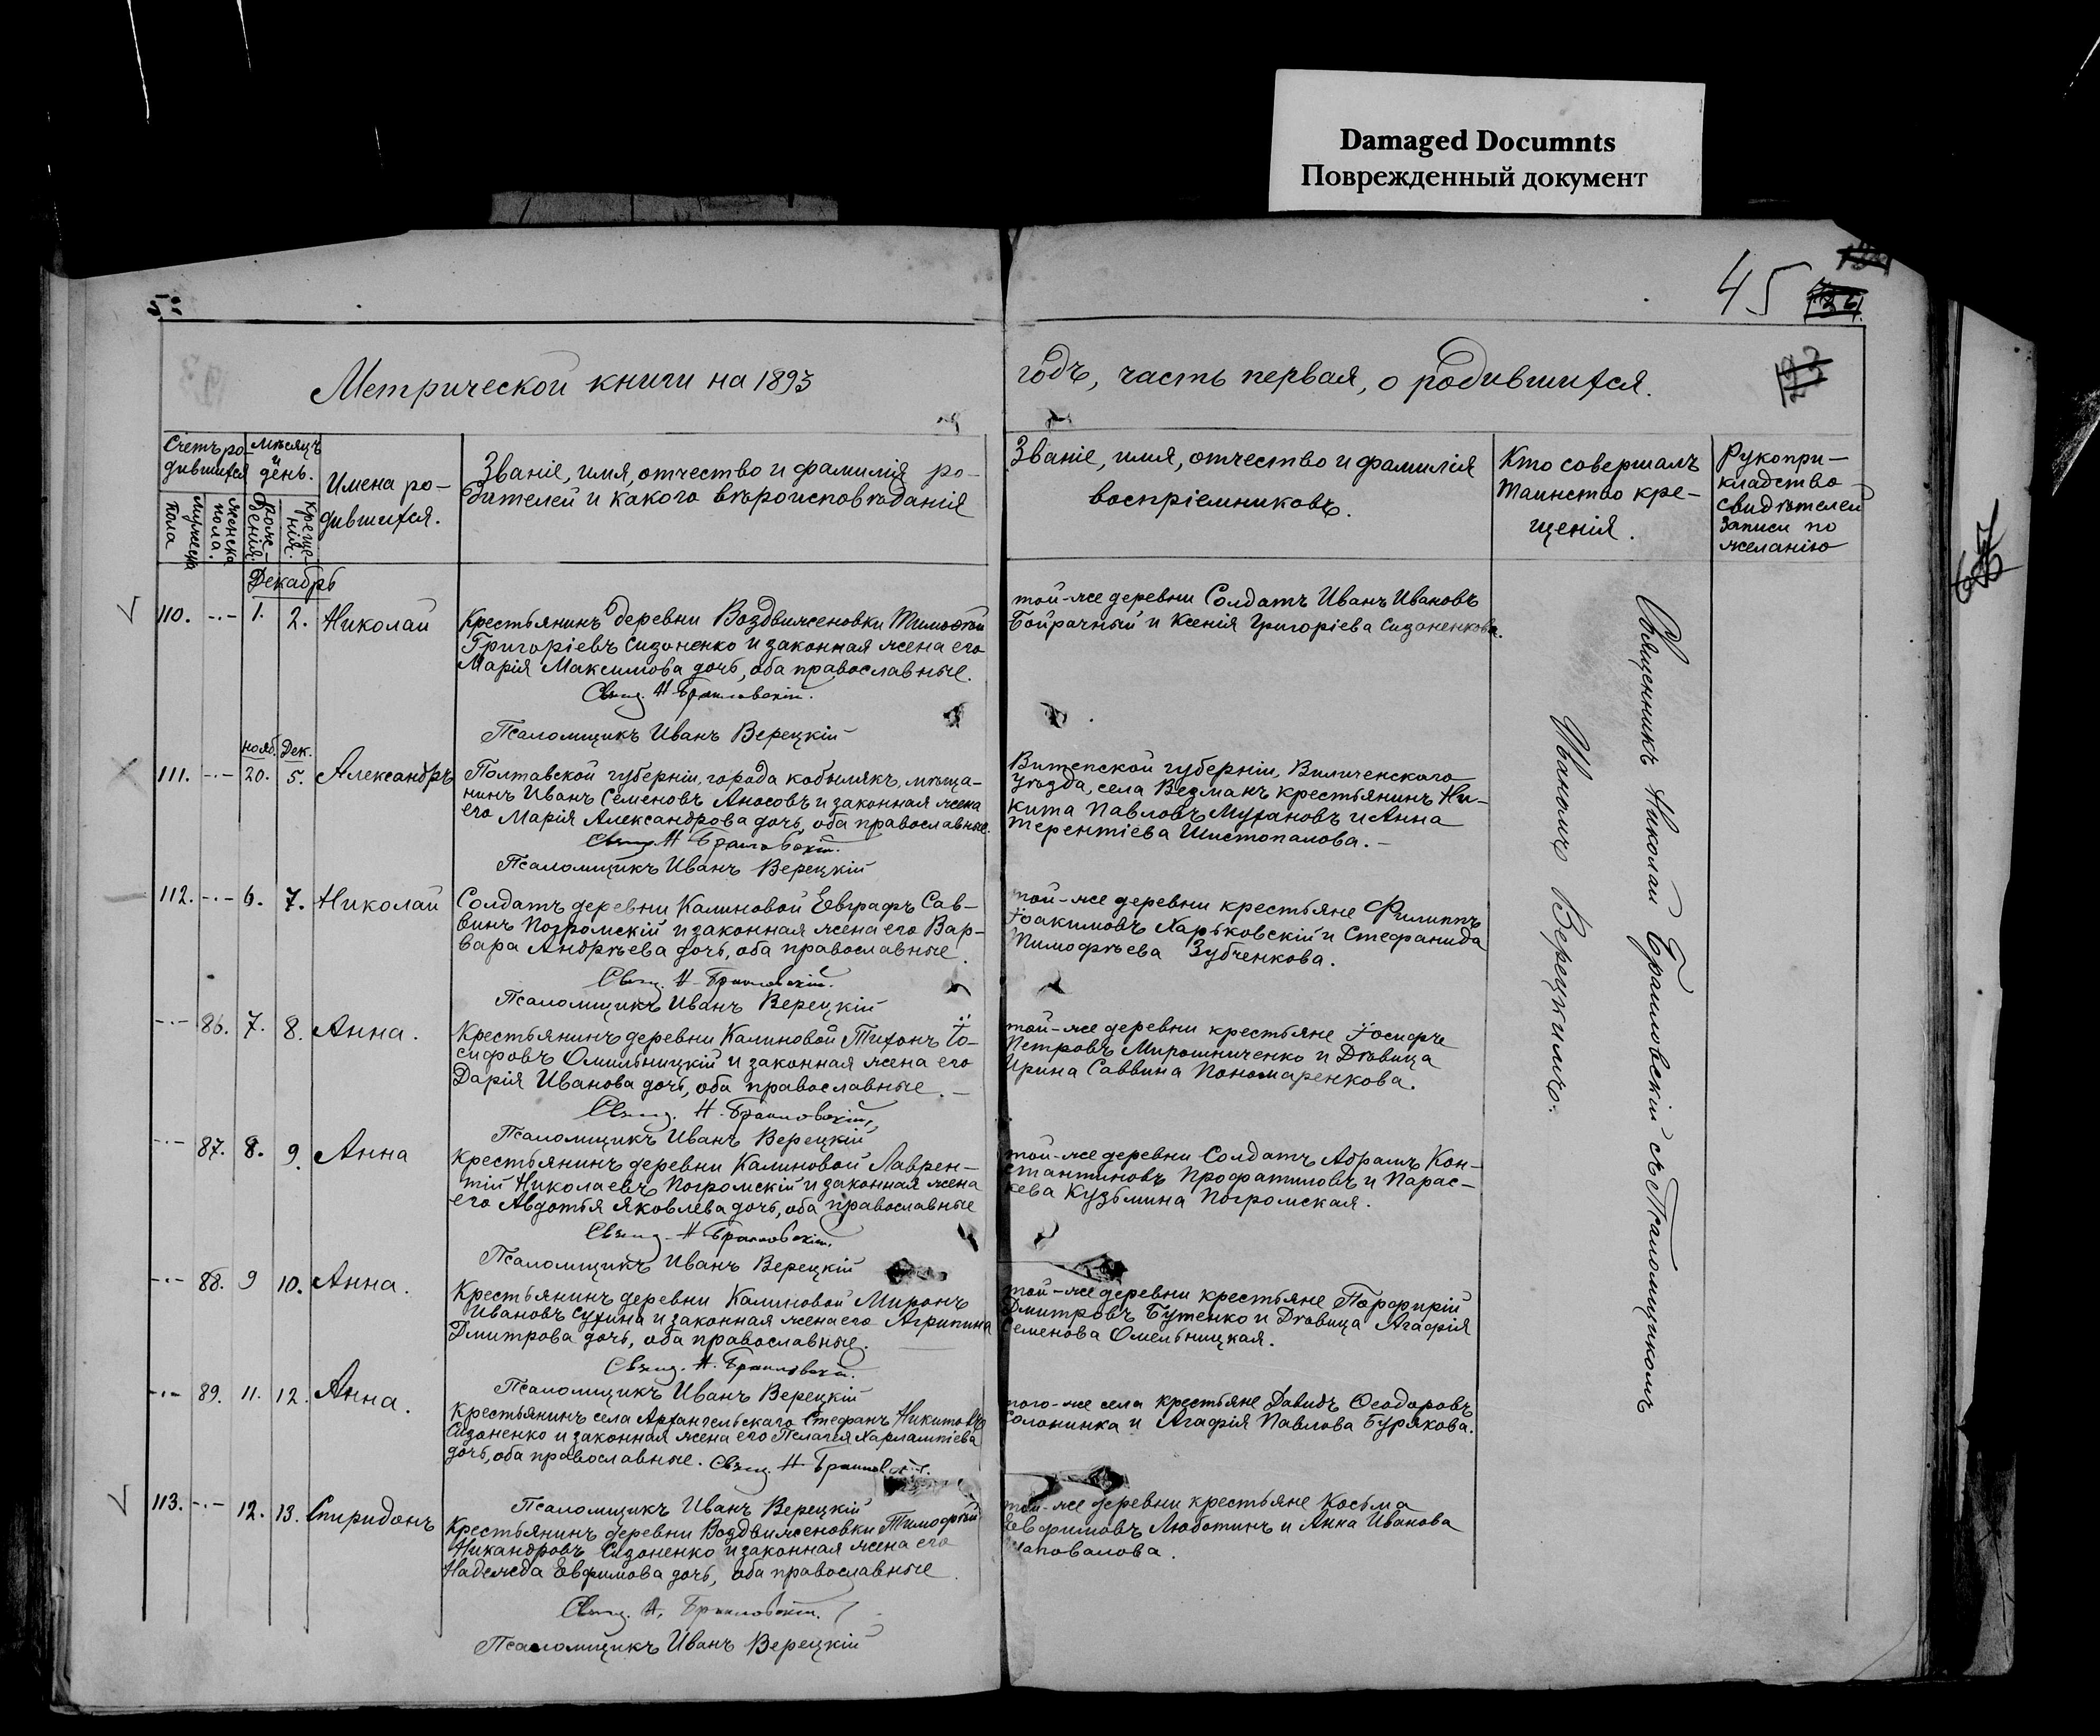 Damaged Documnts
Поврежденный документ
45
Метрической книги на 1893
годъ, часть первая, о родившихся.
Счетъ ро-
дившихся
Мѣсяцъ
и
день.
Имена ро-
дившихся.
Званіе, имя, отчество и фамилія ро-
дителей и какого вѣроисповѣданія
Званіе, имя, отчество и фамилія
воспріемниковъ.
Кто совершалъ
таинство кре-
щенія.
Рукопри-
кладство
свидѣтелей
записи по
желанію
Мужеска
пола
Женска
пола.
Рож-
денія.
Креще-
нія.
Декабрь
110. -·- 1. 2. Николай
Крестьянинъ деревни Воздвиженовки Тимоѳей
Григоріевъ Сизоненко и законная жена его
Марія Максимова дочь, оба православные.
Свящ. Н. Браиловскій.
Псаломщикъ Иванъ Верецкій
той-же деревни Солдатъ Иванъ Ивановъ
Бойрачный и Ксенія Григоріева Сизоненкова.
нояб. Дек.
111. -·- 20. 5. Александръ
Полтавской губерніи, города Кобылякъ, мѣща-
нинъ Иванъ Семеновъ Аносовъ и законная жена
его Марія Александрова дочь, оба православные.
Свящ. Н. Браиловскій.
Псаломщикъ Иванъ Верецкій
Витепской губерніи, Виличенскаго
уѣзда, села Везманъ крестьянинъ Ни-
кита Павловъ Мухановъ и Анна
Терентіева Шистопалова. -
112. -·- 6. 7. Николай
Солдатъ деревни Калиновой Евграфъ Сав-
винъ Погромскій и законная жена его Вар-
вара Андрѣева дочь, оба православные.
Свящ. Н. Браиловскій.
Псаломщикъ Иванъ Верецкій
той-же деревни крестьяне Филиппъ
Іоакимовъ Харьковскій и Стефанида
Тимофѣева Зубченкова.
-·- 86. 7. 8. Анна.
Крестьянинъ деревни Калиновой Тихонъ Іо-
сифовъ Омильницкій и законная жена его
Дарія Иванова дочь, оба православные. -
Свящ. Н. Браиловскій.
Псаломщикъ Иванъ Верецкій
той-же деревни крестьяне Іосифъ
Петровъ Мирошниченко и Дѣвица
Ирина Саввина Пономаренкова.
-·- 87. 8. 9. Анна
Крестьянинъ деревни Калиновой Лаврен-
тій Николаевъ Погромскій и законная жена
его Авдотья Яковлева дочь, оба православные
Свящ. Н. Браиловскій.
Псаломщикъ Иванъ Верецкій
той-же деревни Солдатъ Абрамъ Кон-
стантиновъ Профатиловъ и Парас-
кева Кузьмина Погромская.
-·- 88. 9 10. Анна.
Крестьянинъ деревни Калиновой Миронъ
Ивановъ Сухина и законная жена его Агрипина
Дмитрова дочь, оба православные.
Свящ. Н. Браиловскій.
Псаломщикъ Иванъ Верецкій
той-же деревни крестьяне Порфирій
Дмитровъ Бутенко и Дѣвица Агафія
Семенова Омельницкая.
-·- 89. 11. 12. Анна.
Крестьянинъ села Архангельскаго Стефанъ Никитовъ
Сизоненко и законная жена его Пелагея Харлампіева
дочь, оба православные. Свящ. Н. Браиловскій.
Псаломщикъ Иванъ Верецкій
того-же села крестьяне Давидъ Ѳеодоровъ
Солонинка и Агафія Павлова Бурякова.
113. -·- 12. 13. Спиридонъ
Крестьянинъ деревни Воздвиженовки Тимофей
Никандровъ Сизоненко и законная жена его
Надежда Евфимова дочь, оба православные.
Свящ. Н. Браиловскій.
Псаломщикъ Иванъ Верецкій
той-же деревни крестьяне Косьма
Евфимовъ Люботинъ и Анна Иванова
Шаповалова.
Священникъ Николай Браиловскій съ Псаломщикомъ
Иваномъ Верецкимъ.